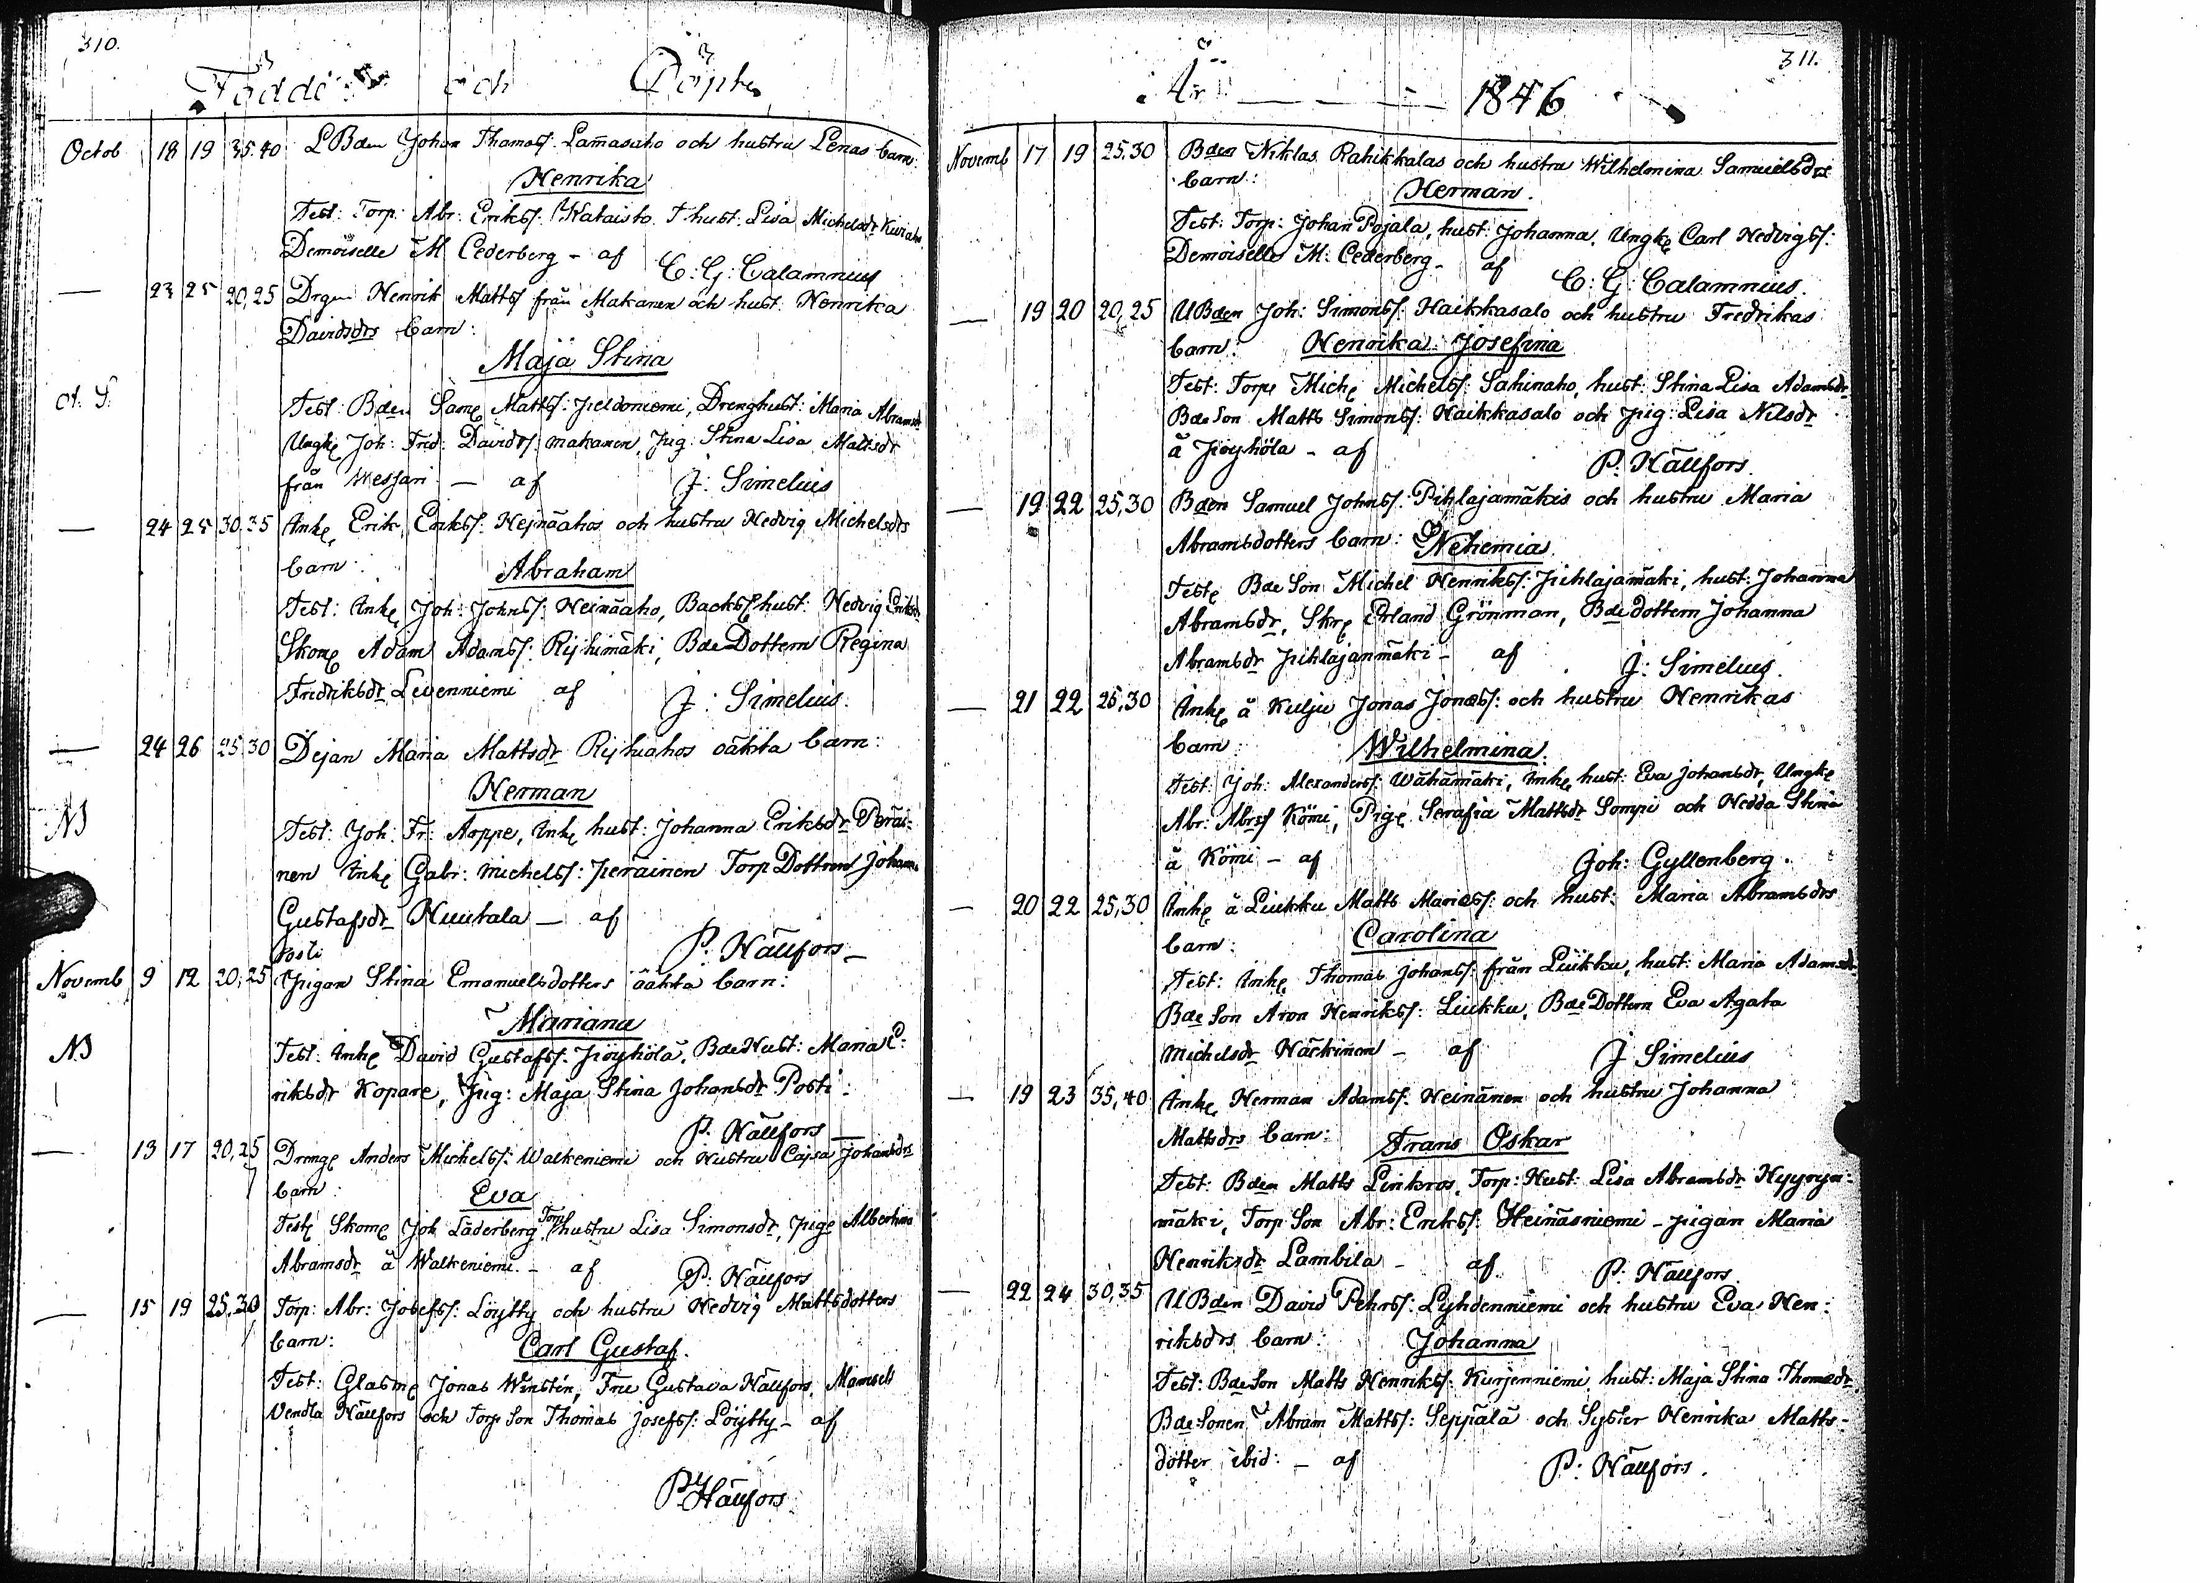 310.
Födde och Döpte
Octob 18 19 35.40 LBden Johan Thomass: Lamasaho och hustru Lenas barn:
Henrika
Test: Torp: Abr: Erikss: Kataisto Thust: Lisa Michelsdr
Demoiselle M Cederberg - af C: G: Calamnius
— 23 25 20,25 Drgn Henrik Mattss från Makanen och hust: Henrika
Davidsdrs barn:
Maja Stina
Test: Bden Same Mattss: Peldoniemi, Drenghust: Maria Abramsdr
Ungke Joh: Fred: Davidss: makanen, Pig: Stina Lisa Mattsdr
från Wessari — af J: Simelius
— 24 25 30,35 Inhe Erik Erikss: Hejnäahos och hustru Hedvig Michelsdrs
barn: Abraham
Test: Inhe Joh: Johnss: Heinäaho, Backss hust: Hedvig Eriksdr
Skome Adam Adamss: Ryhimäki, Bde Dottern Regina
Fredriksdr Levenniemi af J: Simelius.
— 24 26 25,30 Dejan Maria Mattsdr Ryhiahos oäkta barn:
Herman
NB
Test: Joh: Fr: Aoppe, Inhe hust: Johanna Eriksdr Peräi-
nen Inhe Gabr: Michelss: Peräinen Torp Dottren Johanna
Gustafsdr Huutala — af
P. Hällfors —
Posti
Novemb 9 12 20,25 Pigan Stina Emanuelsdotters oäkta barn:
Mariana
NB Test: Inhe David Gustafss: Pöyhölä, Bde Hust: Maria E-
riksdr Kopare, Pig: Maja Stina Johansdr Posti:
P. Hällfors —
— 13 17 20,25 Drenge Anders Michelss: Walkeniemi och Hustru Cajsa Johansdrs
barn: Eva
Teste Skome Joh Läderberg Torp hustru Lisa Simonsdr, Pige Albertina
Abramsdr å Walkeniemi. - af P: Hällfors
— 15 19 25,30 Torp: Abr: Josefss: Löytty och hustru Hedvig Mattsdotters
barn: Carl Gustaf.
Test: Glasme Jonas Winstén, Fru Gustava Hällfors, Mamsell
Vendla Hällfors och Torp Son Thomas Josefss: Löytty - af
P. Hällfors.
311.
År — — — 1846
Novemb 17 19 25,30 Bden Niklas Rahikkalas och hustru Wilhelmina Samuelsdrs
barn: Herman.
Test: Torp: Johan Pojala, hust: Johanna, Ungke Carl Hedvigss:
Demoiselle M: Cederberg - af C: G: Calamnius.
— 19 20 20,25 UBden Joh: Simonss: Haikkasalo och hustru Fredrikas
barn: Henrika Josefina
Test: Torpe Miche Michelss: Sahinaho, hust: Stina Lisa Adamsdr
Bde Son Matts Simonss: Haikkasalo och Pig: Lisa Nilsdr
å Pöyhölä - af P. Hällfors.
— 19 22 25,30 Bden Samuel Johnss: Pihlajamäkis och hustru Maria
Abramsdotters barn: Nehemia
Teste Bde Son Michel Henrikss: Pihlajamäki, hust: Johanna
Abramsdr, Skre Erland Grönman, Bde dottern Johanna
Abramsdr Pihlajanmäki - af J: Simelius.
— 21 22 25,30 Inhe å Kulju Jonas Jonass: och hustru Henrikas
barn: Wilhelmina.
Test: Joh: Alexanderss: Wähämäki, Inhe hust: Eva Johansdr, Ungke
Abr: Abrss Kömi, Pige Serafia Mattsdr Sompi och Hedda Stina
å Kömi - af Joh: Gyllenberg.
— 20 22 25,30 Inhe å Liukku Matts Mariass: och hust: Maria Abramsdrs
barn: Carolina
Test: Inhe Thomas Johanss: från Liukku, hust: Maria Adamsdr
Bde Son Aron Henrikss: Liukku, Bde Dottern Eva Agata
Michelsdr Härkinen - af J Simelius
— 19 23 35,40 Inhe Herman Adamss: Heinänen och hustru Johanna
Mattsdrs barn: Frans Oskar
Test: Bden Matts Linkros, Torp: Hust: Lisa Abramsdr Hyyryn-
mäki, Torp Son Abr: Erikss: Heinäsniemi - Pigan Maria
Henriksdr Lambila - af P. Hällfors.
— 22 24 30,35 UBden David Pehrss: Lyhdenniemi och hustru Eva Hen-
riksdrs barn: Johanna
Test: Bde Son Matts Henrikss: Kurjenniemi, hust: Maja Stina Thomasdr
Bde Sonen Abram Mattss: Seppälä och Syster Henrika Matts-
dotter ibid: - af P: Hällfors.